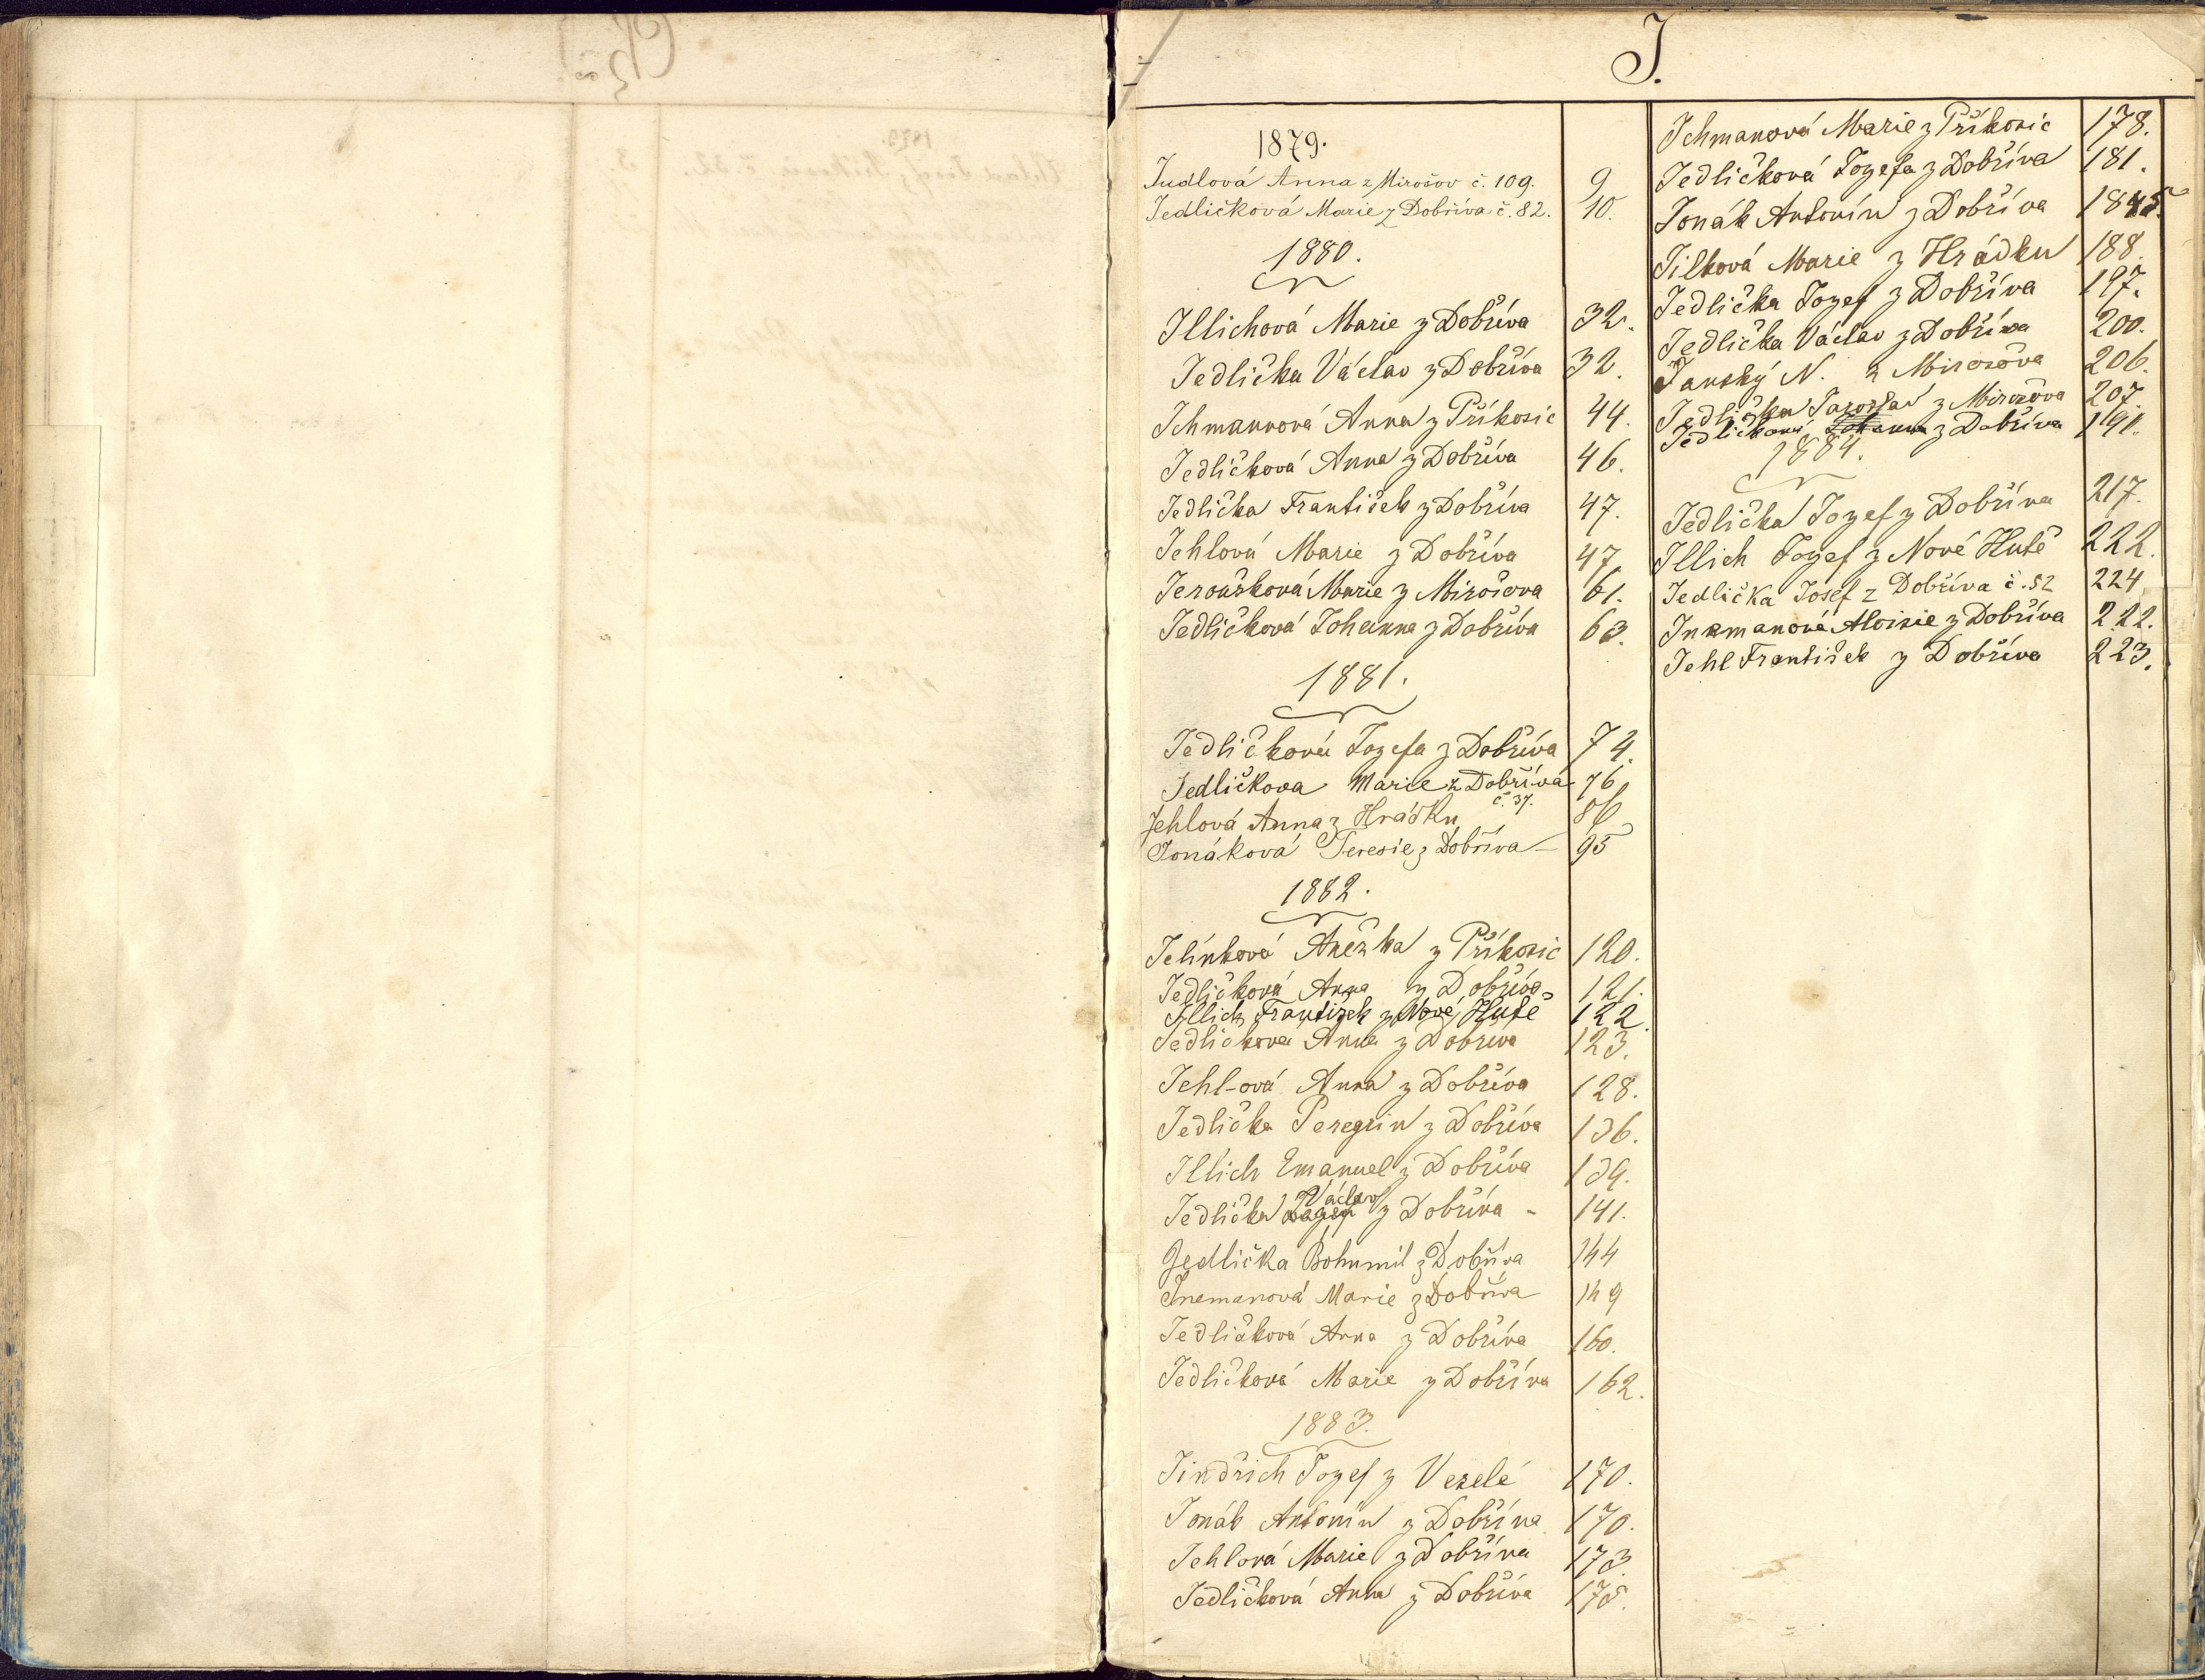 J.
1879.
Judlová Anna z Mirošov č. 109. 9
Jedličková Marie z Dobříva č. 82. 10.
1880.
Illichová Marie z Dobříva 32.
Jedlička Václav z Dobříva 32.
Ichmannová Anna z Příkosic 44.
Jedličková Anna z Dobříva 46.
Jedlička František z Dobříva 47.
Jehlová Marie z Dobříva 47
Jeroušková Marie z Mirošova 61.
Jedličková Johanna z Dobříva 63.
1881.
Jedličková Jozefa z Dobříva 74.
Jedličkova Marie z Dobříva 76
č. 37.
Jehlová Anna z Hrádku 86
Jonáková Teresie z Dobříva 95
1882.
Jelínková Anežka z Příkosic 120.
Jedličková Anna z Dobříva 121.
Illich František z Nové Hutě 122.
Jedličkova Anna z Dobříva 123.
Jehl-ová Anna z Dobříva 128.
Jedlička Peregrin z Dobříva 136.
Illich Emanuel z Dobříva 139.
Jedlička Václav z Dobříva - 141.
Jedlička Bohumil z Dobříva 144
Inemanová Marie z Dobříva 149
Jedličková Anna z Dobříva 160.
Jedličková Marie z Dobříva 162.
1883.
Jindřich Jozef z Veselé 170.
Jonák Antonín z Dobříva 170.
Jehlová Marie z Dobříva 173.
Jedličková Anna z Dobříva 175.
Ichmanová Marie z Příkosic 178.
Jedličková Jozefa z Dobříva 181.
Jonák Antonín z Dobříva
Jílková Marie z Hrádku 188.
Jedlička Jozef z Dobříva 197.
Jedlička Václav z Dobříva 200.
Janský N. z Mirosova 206.
Jedlička Jaroslav z Mirošova 207
Jedličková Johanna z Dobříva 191.
1884.
Jedlička Jozef z Dobříva 217.
Illich Jozef z Nové Hutě 222.
Jedlička Josef z Dobříva č. 52 224
Inemanová Aloisie z Dobříva 222.
Jehl František z Dobříva 223.